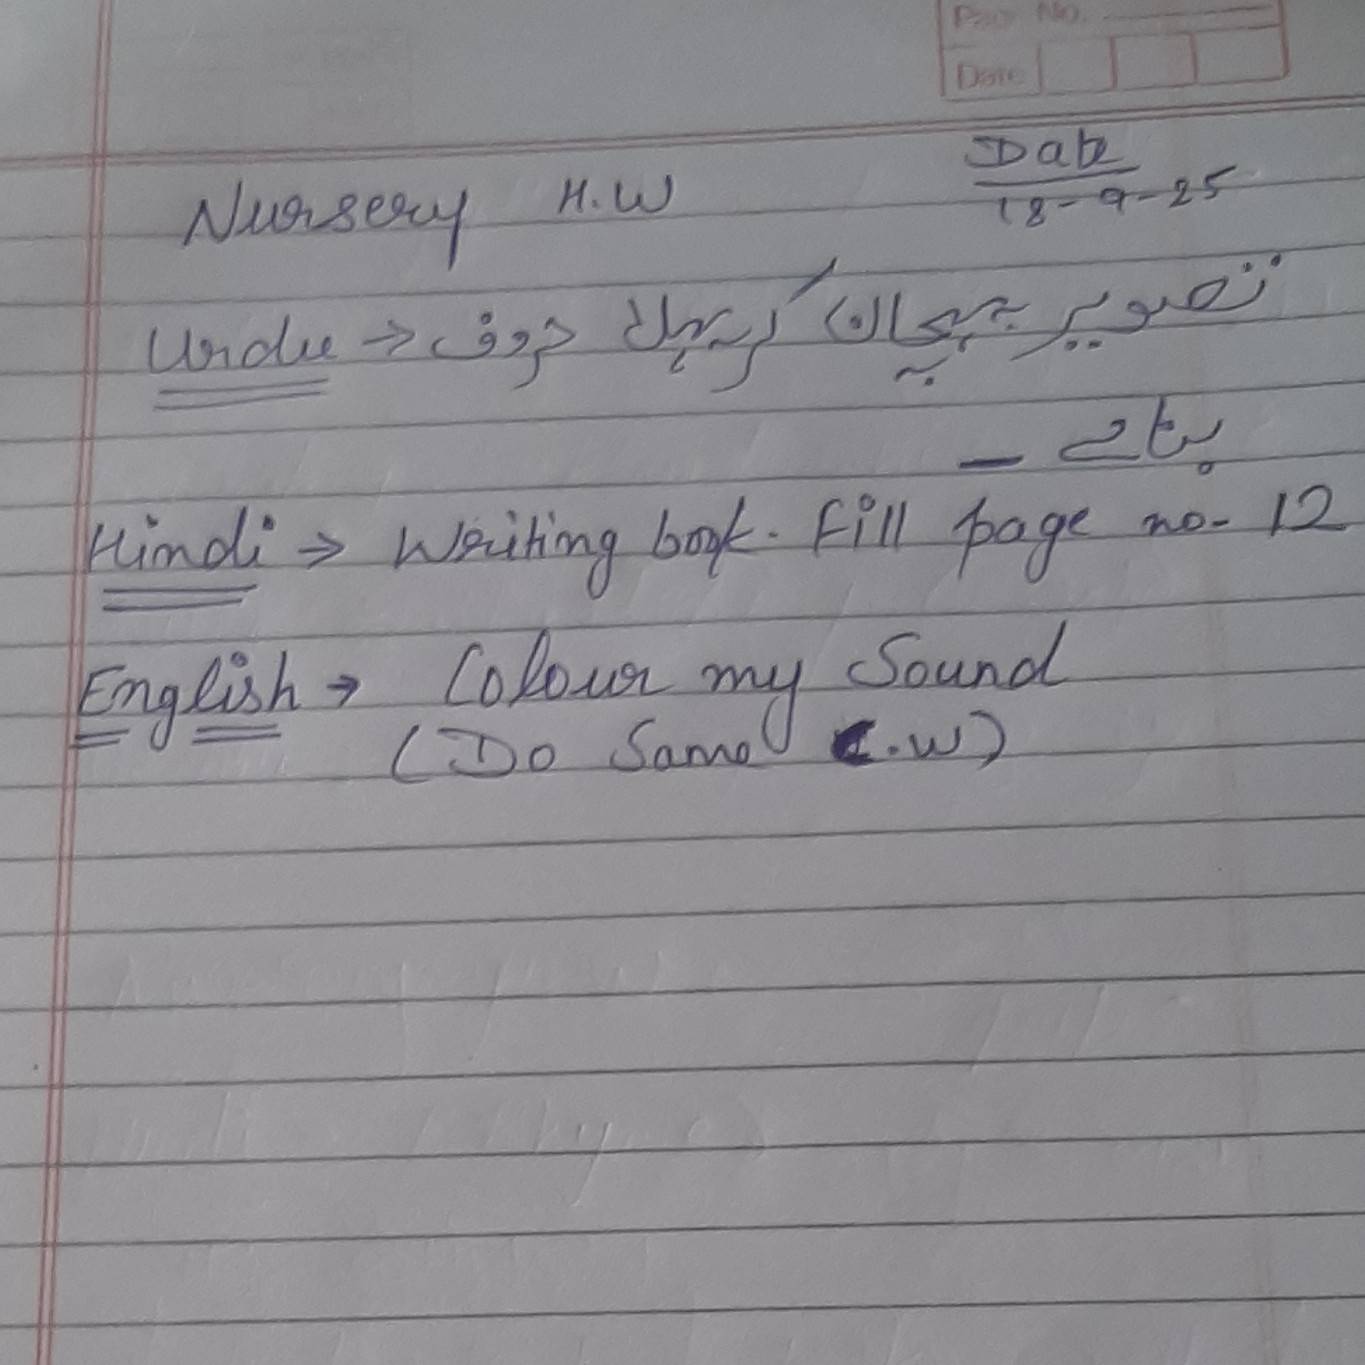 Page No.
Date
Date
18-9-25
Nursery H.W
Urdu → تصویر پہچان کر پہلا حروف
بنائے ۔
Hindi → Writing book. Fill page no- 12
English → Colour my Sound
(Do Same C.W)